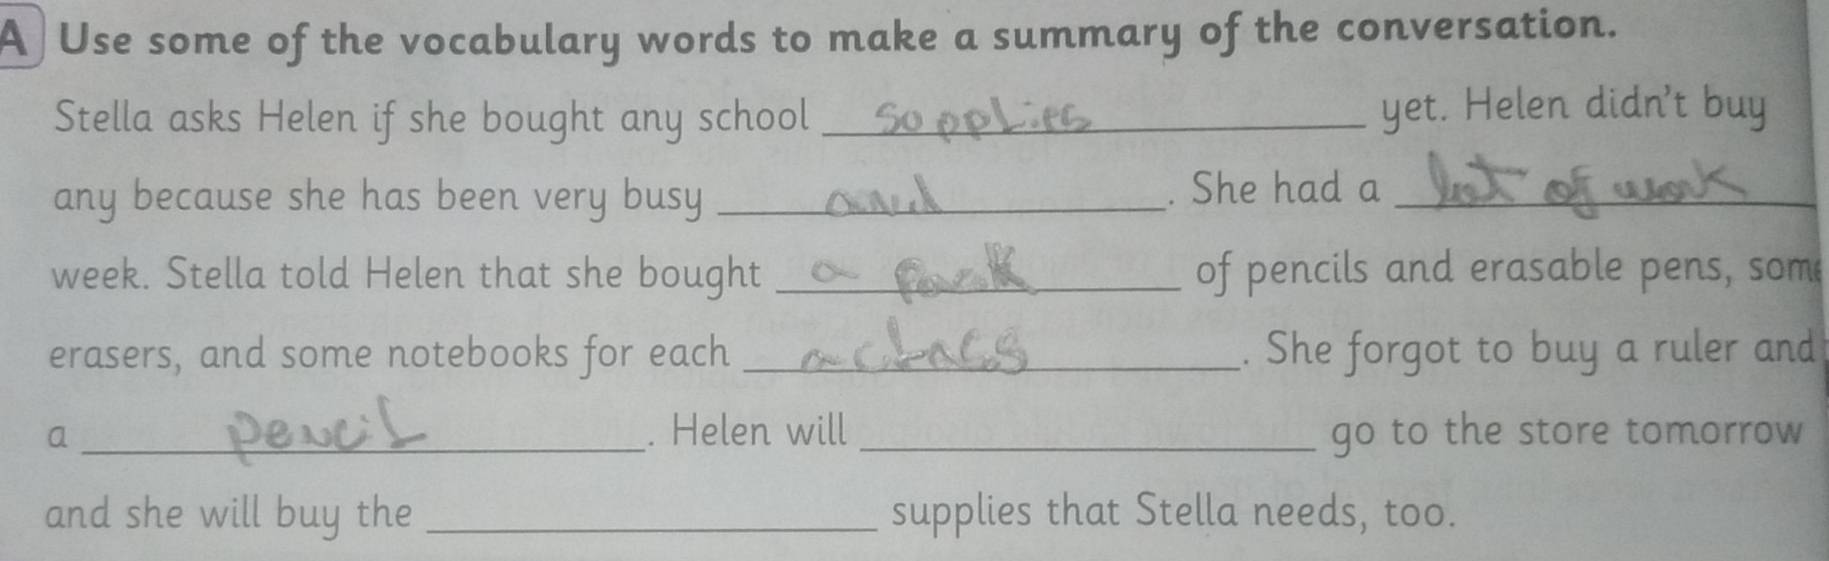 A Use some of the vocabulary words to make a summary of the conversation.
Stella asks Helen if she bought any school sopplies yet. Helen didn't buy
any because she has been very busy and. She had a lot of work
week. Stella told Helen that she bought a pack of pencils and erasable pens, some
erasers, and some notebooks for each a class. She forgot to buy a ruler and
a pencil. Helen will go to the store tomorrow
and she will buy the supplies that Stella needs, too.